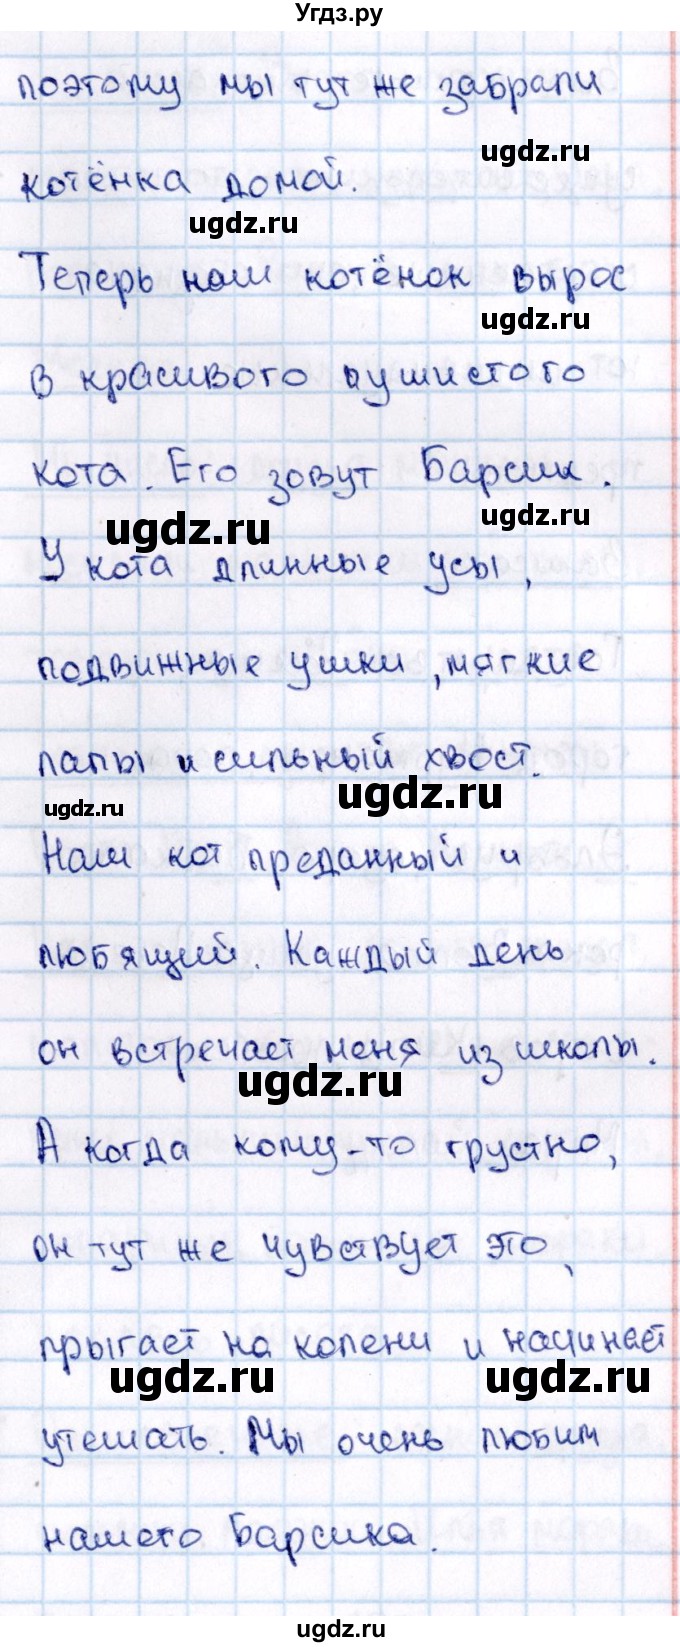 Угдз.ру
поэтому мы тут же забрали
ugdz.ru
котёнка домой.
ugdz.ru
Теперь наш котёнок вырос
ugdz.ru
в красивого пушистого
кота. Его зовут Барсик.
ugdz.ru
ugdz.ru
У кота длинные усы,
подвижные ушки, мягкие
лапы и сильный хвост.
ugdz.ru
ugdz.ru
Наш кот преданный и
любящий. Каждый день
он встречает меня из школы.
ugdz.ru
А когда кому-то грустно,
он тут же чувствует это,
прыгает на колени и начинает
ugdz.ru
ugdz.ru
утешать. Мы очень любим
нашего Барсика.
ugdz.ru